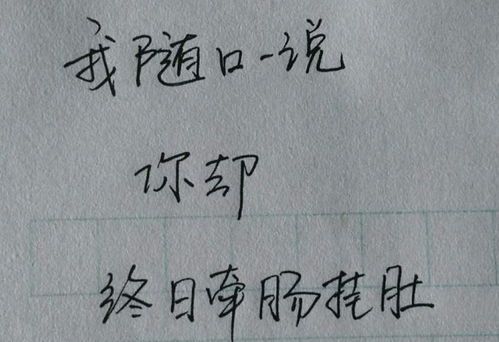 我随口一说
你却
终日牵肠挂肚